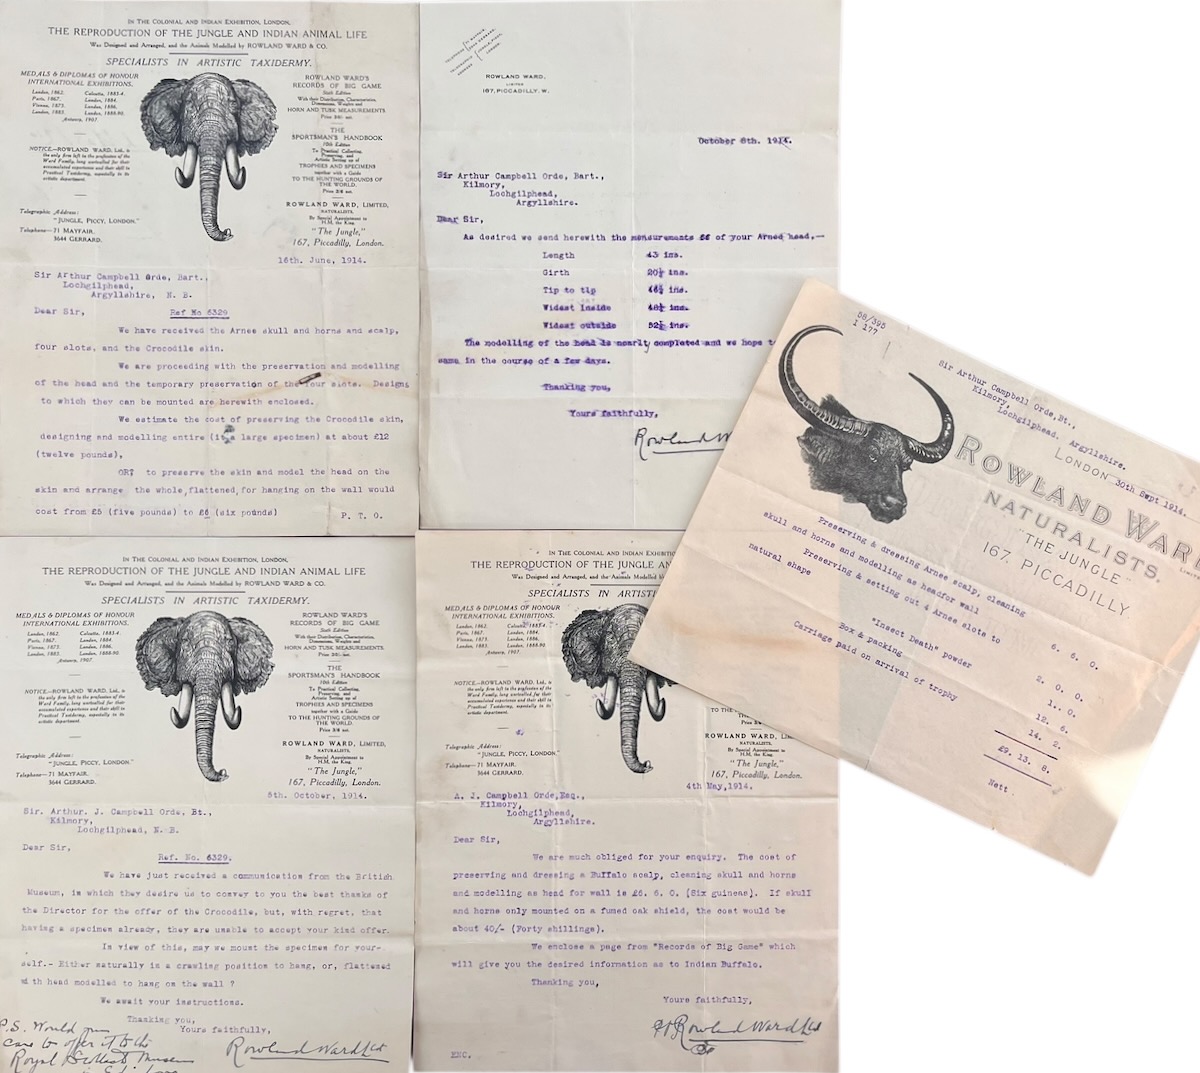 In The Colonial and Indian Exhibition, London,
THE REPRODUCTION OF THE JUNGLE AND INDIAN ANIMAL LIFE
Was Designed and Arranged, and the Animals Modelled by ROWLAND WARD & CO.
SPECIALISTS IN ARTISTIC TAXIDERMY.
MEDALS & DIPLOMAS OF HONOUR
INTERNATIONAL EXHIBITIONS.
London, 1862. Calcutta, 1883-4.
Paris, 1867. London, 1884.
Vienna, 1873. London, 1886.
London, 1883. London, 1888-90.
Antwerp, 1907
NOTICE.—ROWLAND WARD, Ltd., is
the only firm left in the profession of the
Ward Family, long unrivalled for their
accumulated experience and their skill in
Practical Taxidermy, especially in its
artistic department.
Telegraphic Address:
"JUNGLE, PICCY, LONDON."
Telephone—71 MAYFAIR.
3644 GERRARD.
ROWLAND WARD'S
RECORDS OF BIG GAME
Sixth Edition
With their Distribution, Characteristics,
Dimensions, Weights and
HORN AND TUSK MEASUREMENTS
Price 30/- net.
THE
SPORTSMAN'S HANDBOOK
10th Edition
To Practical Collecting,
Preserving, and
Artistic Setting up of
TROPHIES AND SPECIMENS
together with a Guide
TO THE HUNTING GROUNDS OF
THE WORLD.
Price 3/6 net.
ROWLAND WARD, LIMITED,
NATURALISTS,
By Special Appointment to
H.M. the King.
"The Jungle,"
167, Piccadilly, London.
16th. June, 1914.
Sir Arthur Campbell Orde, Bart.,
Lochgilphead,
Argyllshire, N. B.
Dear Sir,
Ref No 6329
We have received the Arnee skull and horns and scalp,
four slots, and the Crocodile skin.
We are proceeding with the preservation and modelling
of the head and the temporary preservation of the four slots. Designs
to which they can be mounted are herewith enclosed.
We estimate the cost of preserving the Crocodile skin,
designing and modelling entire (it a large specimen) at about £12
(twelve pounds),
OR to preserve the skin and model the head on the
skin and arrange the whole flattened, for hanging on the wall would
cost from £5 (five pounds) to £6 (six pounds)
P. T. O.
ROWLAND WARD,
LIMITED
167, PICCADILLY, W.
October 8th. 1914.
Sir Arthur Campbell Orde, Bart.,
Kilmory,
Lochgilphead,
Argyllshire.
Dear Sir,
As desired we send herewith the measurements of your Arnee head.—
Length 43 ins.
Girth 20½ ins.
Tip to tip
Widest inside
Widest outside
The modelling of the head is nearly completed and we hope to
same in the course of a few days.
Thanking you,
Yours faithfully,
Rowland W
58/395
I 177
Sir Arthur Campbell Orde, Bt.,
Kilmory,
Lochgilphead. Argyllshire.
LONDON 30th Sept 1914.
ROWLAND WAR
NATURALISTS.
"THE JUNGLE"
167. PICCADILLY
Preserving & dressing Arnee scalp, cleaning
skull and horns and modelling as headfor wall 6. 6. 0.
Preserving & setting out 4 Arnee slots to
natural shape 2. 0. 0.
"Insect Death" powder 1. 0
Box & packing 12. 6.
Carriage paid on arrival of trophy 14. 2.
£9. 13. 8.
Nett
In The Colonial and Indian Exhibition, London,
THE REPRODUCTION OF THE JUNGLE AND INDIAN ANIMAL LIFE
Was Designed and Arranged, and the Animals Modelled by ROWLAND WARD & CO.
SPECIALISTS IN ARTISTIC TAXIDERMY.
MEDALS & DIPLOMAS OF HONOUR
INTERNATIONAL EXHIBITIONS.
London, 1862. Calcutta, 1883-4.
Paris, 1867. London, 1884
Vienna, 1873. London, 1886.
London, 1883. London, 1888-90.
Antwerp, 1907.
NOTICE.—ROWLAND WARD, Ltd., is
the only firm left in the profession of the
Ward Family, long unrivalled for their
accumulated experience and their skill in
Practical Taxidermy, especially in its
artistic department.
Telegraphic Address:
"JUNGLE, PICCY, LONDON."
Telephone—71 MAYFAIR.
3644 GERRARD.
ROWLAND WARD'S
RECORDS OF BIG GAME
Sixth Edition
With their Distribution, Characteristics,
Dimensions, Weights and
HORN AND TUSK MEASUREMENTS
Price 30/- net.
THE
SPORTSMAN'S HANDBOOK
10th Edition
To Practical Collecting,
Preserving, and
Artistic Setting up of
TROPHIES AND SPECIMENS
together with a Guide
TO THE HUNTING GROUNDS OF
THE WORLD.
Price 3/6 net.
ROWLAND WARD, LIMITED,
NATURALISTS,
By Special Appointment to
H.M. the King.
"The Jungle,"
167, Piccadilly, London.
5th. October, 1914.
Sir. Arthur. J. Campbell Orde, Bt.,
Kilmory,
Lochgilphead, N. B.
Dear Sir,
Ref. No. 6329.
We have just received a communication from the British
Museum, in which they desire us to convey to you the best thanks of
the Director for the offer of the Crocodile, but, with regret, that
having a specimen already, they are unable to accept your kind offer.
In view of this, may we mount the specimen for your-
self.- Either naturally in a crawling position to hang, or, flattened
with head modelled to hang on the wall ?
We await your instructions.
Thanking you,
Yours faithfully,
Rowland Ward Ltd
P.S. Would you
care to offer it to the
Royal Scottish Museum
in Edinburgh
In The Colonial and Indian Exhibition
THE REPRODUCTION OF THE JUNGLE AN
Was Designed and Arranged, and the Animals Modelled b
SPECIALISTS IN ARTISTI
MEDALS & DIPLOMAS OF HONOUR
INTERNATIONAL EXHIBITIONS.
London, 1862. Calcutta, 1883-4.
Paris, 1867. London, 1884.
Vienna, 1873. London, 1886.
London, 1883. London, 1888-90.
Antwerp, 1907.
NOTICE.—ROWLAND WARD, Ltd., is
the only firm left in the profession of the
Ward Family, long unrivalled for their
accumulated experience and their skill in
Practical Taxidermy, especially in its
artistic department.
Telegraphic Address:
"JUNGLE, PICCY, LONDON."
Telephone—71 MAYFAIR.
3644 GERRARD.
TO THE HUNTING GROU
THE WORLD.
ROWLAND WARD, LIM
NATURALISTS,
By Special Appointment to
H.M. the King.
"The Jungle,"
167, Piccadilly, London.
4th May, 1914.
A. J. Campbell Orde, Esq.,
Kilmory,
Lochgilphead,
Argyllshire.
Dear Sir,
We are much obliged for your enquiry. The cost of
preserving and dressing a Buffalo scalp, cleaning skull and horns
and modelling as head for wall is £6. 6. 0. (Six guineas). If skull
and horns only mounted on a fumed oak shield, the cost would be
about 40/- (Forty shillings).
We enclose a page from "Records of Big Game" which
will give you the desired information as to Indian Buffalo.
Thanking you,
Yours faithfully,
Rowland Ward Ltd
ENC.